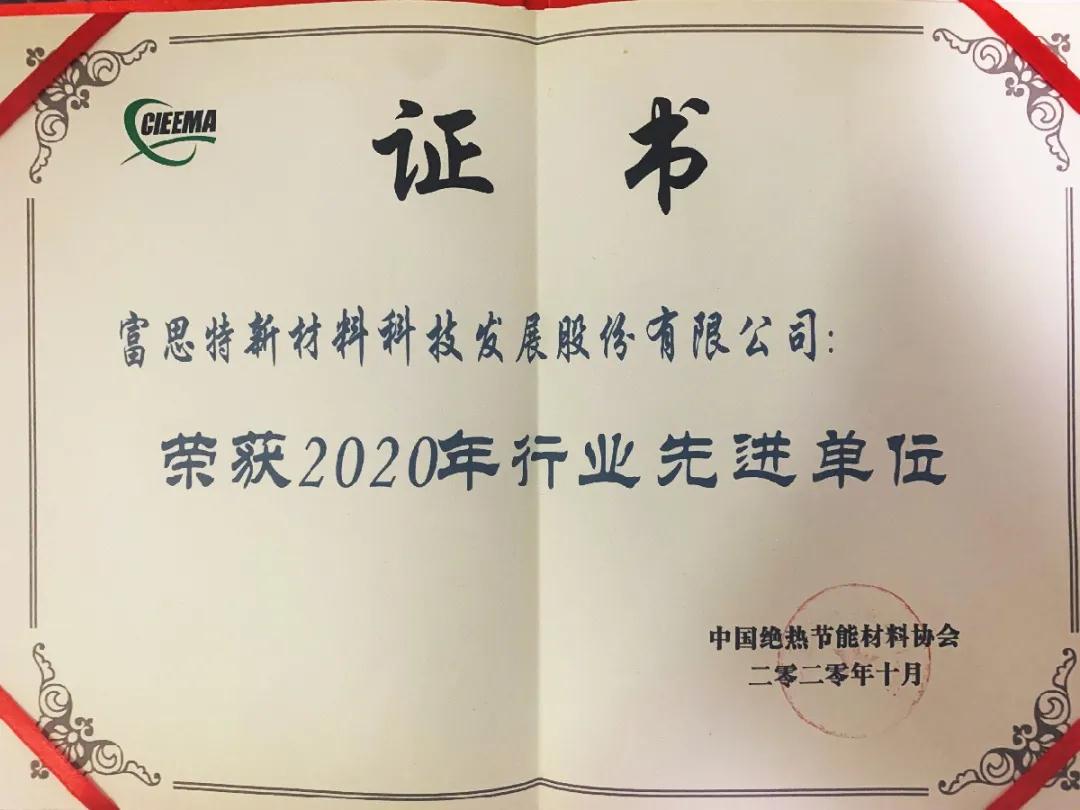 CIEEMA
证书
富思特新材料科技发展股份有限公司:
荣获2020年行业先进单位
中国绝热节能材料协会
二零二零年十月